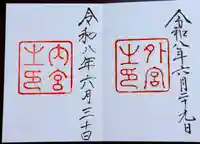 令和八年六月二十九日
外宮
之印
令和八年六月三十日
内宮
之印